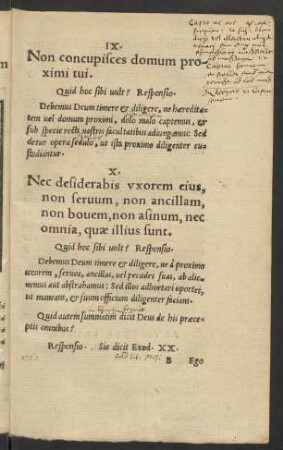 IX.
Non concupisces domum pro
ximi tui.
Quid hoc sibi uult? Responsio.
Debemus Deum timere & diligere, ne hæredita
tem uel domum proximi, dolo malo captemus, et
sub specie recti, nostris facultatibus adiungamus: Sed
detur opera sedulo, ut ista proximo diligenter cu
stodiantur.
X.
Nec desiderabis vxorem eius,
non seruum, non ancillam,
non bouem, non asinum, nec
omnia, quæ illius sunt.
Quid hoc sibi uult? Responsio.
Debemus Deum timere & diligere, ne à proximo
uxorem, seruos, ancillas, uel pecudes suas, ab alie
nemus aut abstrahamus: Sed illos adhortari oportet,
ut maneant, & suum officium diligenter faciant.
Quid autem summatim dicit Deus de his præce
ptis omnibus?
Responsio. Sic dicit Exod. XX.
B Ego